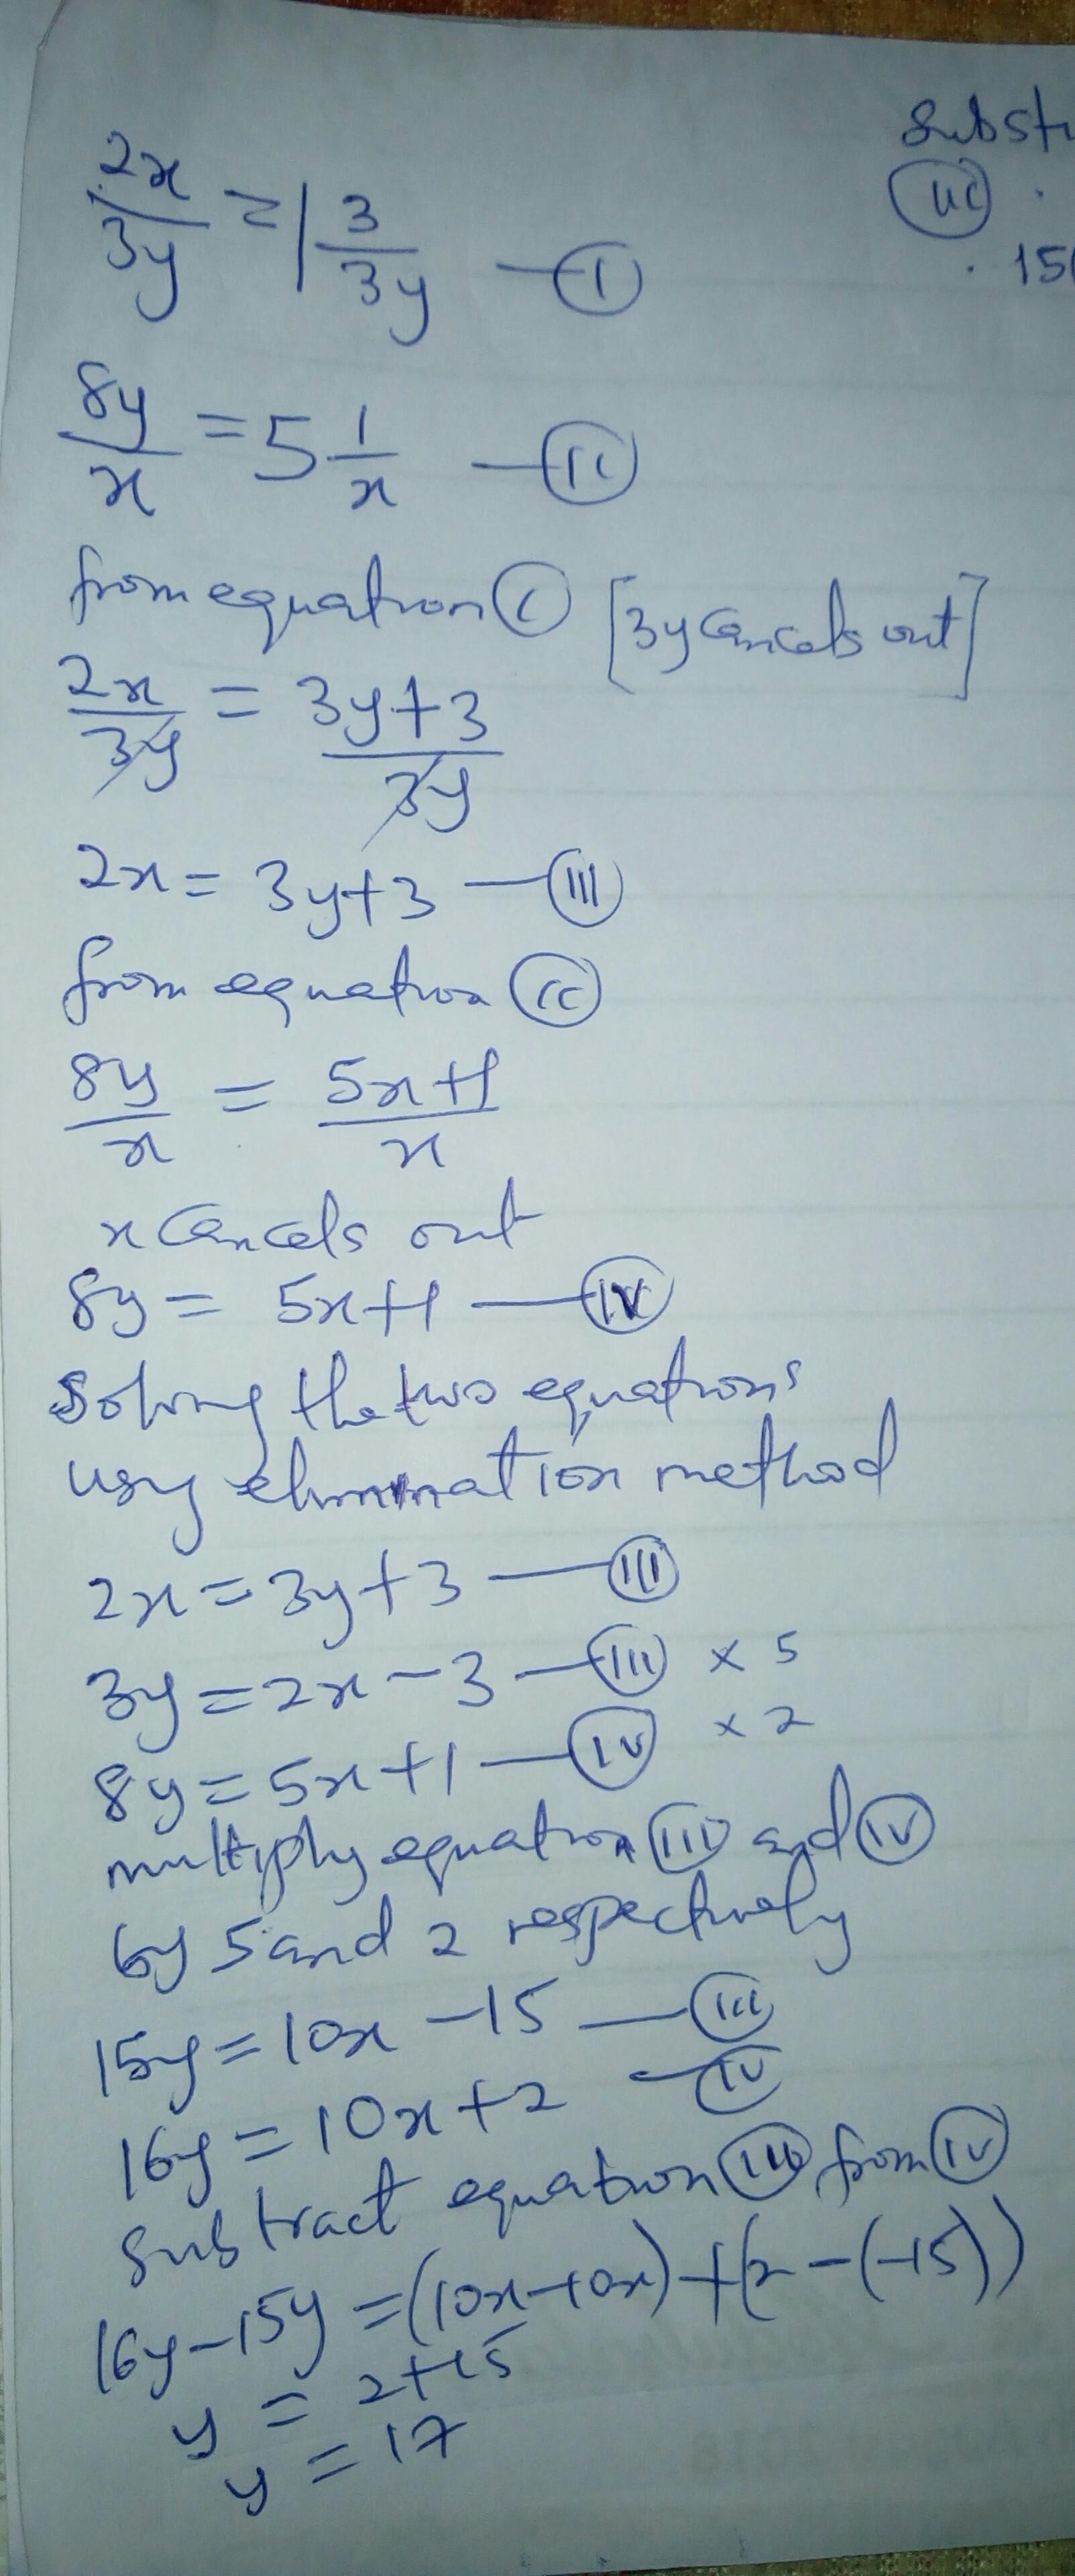 2x/3y = 1 3/3y — (I)
8y/x = 5 1/x — (ii)
from equation (i) [3y cancels out]
2x/3y = 3y+3/3y
2x = 3y+3 — (III)
from equation (ii)
8y/x = 5x+1/x
x cancels out
8y = 5x+1 — (IV)
Solving the two equations
using elimination method
2x = 3y+3 — (III)
3y = 2x-3 — (III) x 5
8y = 5x+1 — (IV) x 2
multiply equation (III) and (IV)
by 5 and 2 respectively
15y = 10x -15 — (III)
16y = 10x+2 — (IV)
subtract equation (III) from (IV)
16y-15y = (10x-10x)+(2-(-15))
y = 2+15
y = 17
Substi
(III)
15